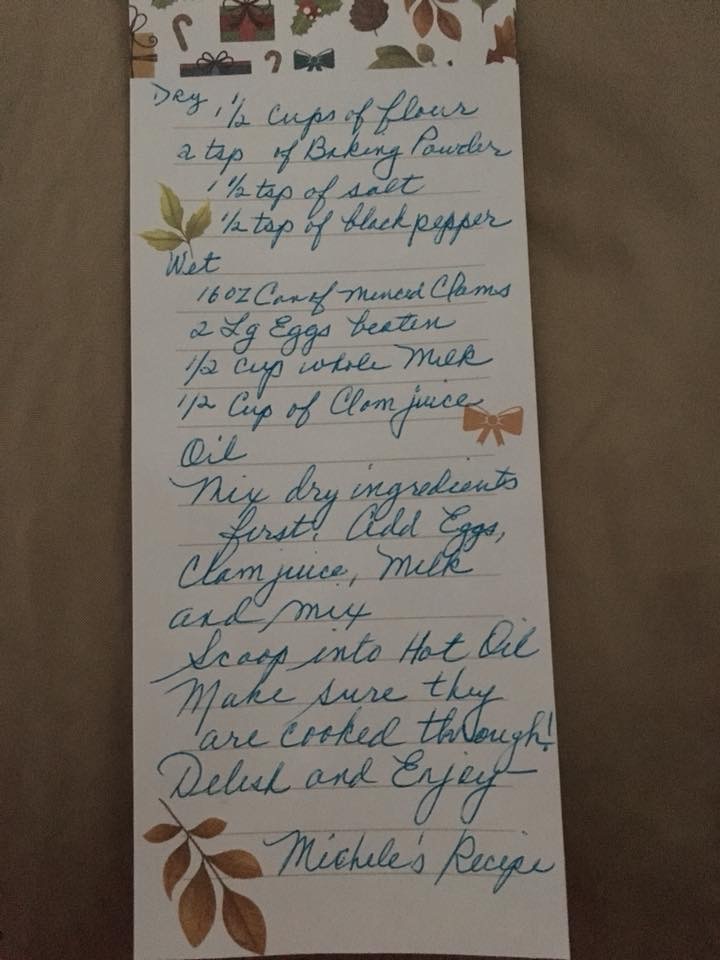 Dry 1 1/2 Cups of flour
2 tsp of Baking Powder
1 1/2 tsp of salt
1/2 tsp of black pepper
Wet
16 oz Can of Minced Clams
2 Lg Eggs beaten
1/2 cup whole Milk
1/2 Cup of Clam juice
Oil
Mix dry ingredients
first. Add Eggs,
Clam juice, Milk
and mix
Scoop into Hot Oil
Make sure they
are cooked through!
Delish and Enjoy—
Michele's Recipe